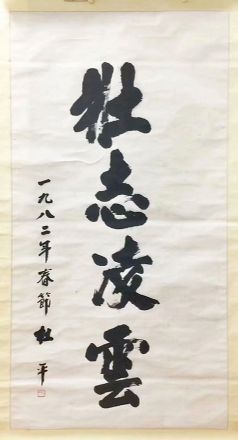 壮志凌雲
一九八二年春節 杜平